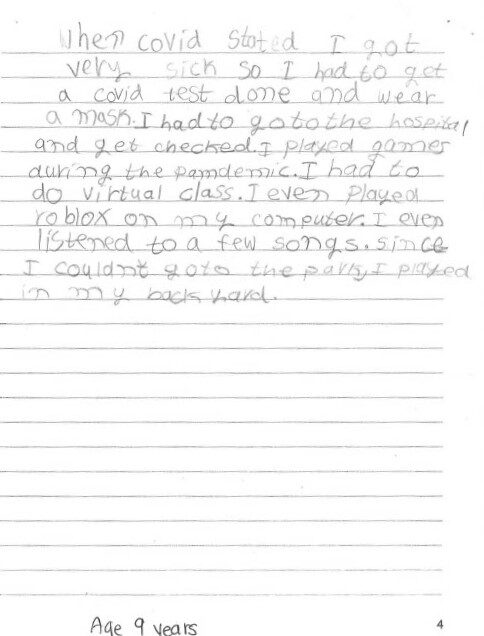 When covid stated I got
very sick so I had to get
a covid test done and wear
a mask. I had to go to the hospital
and get checked. I played games
during the pamdemic. I had to
do virtual class. I even played
roblox on my computer. I even
listened to a few songs. since
I couldnt go to the park, I played
in my back yard.
Age 9 years
4